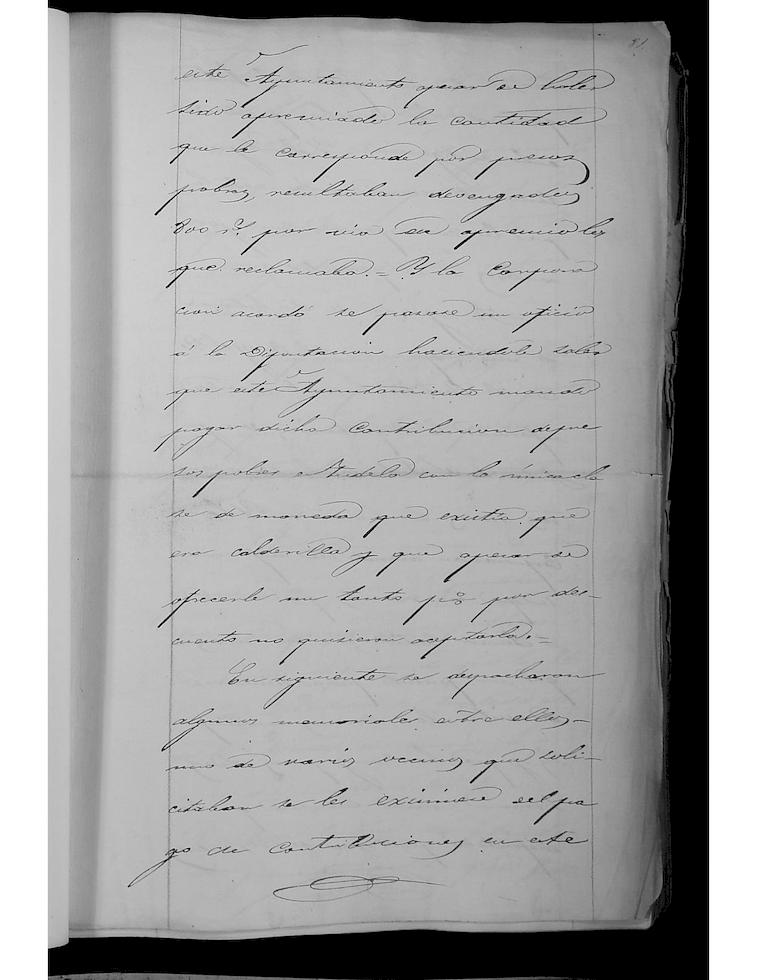 81.
este Ayuntamiento apesar de haber
sido apremiado la cantidad
que le corresponde por presos
pobres, resultaban devengados
800 rs. por via de apremio los
que reclamaba.= Y la Corpora
cion acordó se pasase un oficio
á la Diputacion haciendole saber
que este Ayuntamiento mandó
pagar dicha Contribucion de pre
sos pobres a Tudela con la única cla
se de moneda que existia que
era calderilla y que apesar de
ofrecerle un tanto p% por des-
cuento no quisieron aceptarla.=
En siguiente se despacharon
algunos memoriales entre ellos-
uno de varios vecinos que soli-
citaban se les eximiese del pa
go de contribuciones en este